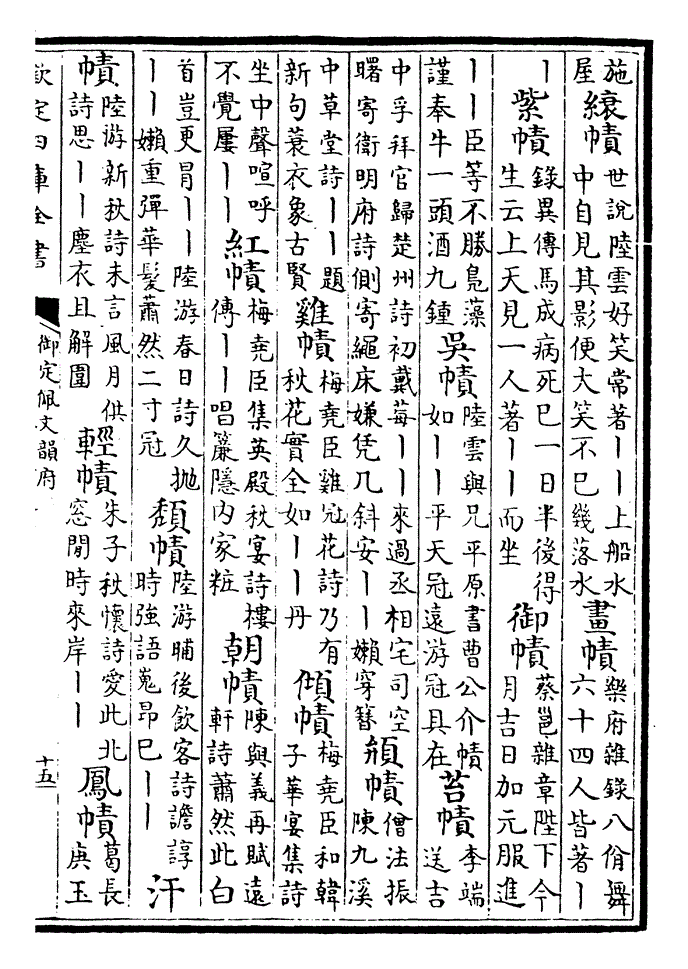 施
屋
縗幘
世說陸雲好笑常著丨丨上船水
中自見其影便大笑不已幾落水
畫幘
樂府雜錄八佾舞
六十四人皆著丨
丨
紫幘
錄異傳馬成病死巳一日半後得
生云上天見一人著丨丨而坐
御幘
蔡邕雜章陛下今
月吉日加元服進
丨丨臣等不勝鳧藻
謹奉牛一頭酒九鍾
吳幘
陸雲與兄平原書曹公介幘
如丨丨平天冠遠游冠具在
苔幘
李端
送吉
中孚拜官歸楚州詩初戴莓丨丨來過丞相宅司空
曙寄衛明府詩側寄繩床嫌凭几斜安丨丨嬾穿簪
幘
僧法振
陳九溪
中草堂詩丨丨題
新句蓑衣象古賢
雞幘
梅堯臣雞冠花詩乃有
秋花實全如丨丨丹
傾幘
梅堯臣和韓
子華宴集詩
坐中聲喧呼
不覺屢丨丨
紅幘
梅堯臣集英殿秋宴詩樓
傳丨丨唱簾隱内家粧
朝幘
陳與義再賦遠
軒詩蕭然此白
首豈更冒丨丨陸游春日詩久拋
丨丨嬾重彈華髮蕭然二寸冠
頽幘
陸游晡後飲客詩譫諄
時強語嵬昂巳丨丨
汗
幘
陸游新秋詩未言風月供
詩思丨丨塵衣且解圍
輕幘
朱子秋懷詩愛此北
窓閒時來岸丨丨
鳳幘
葛長
庚玉
欽定四庫全書
御定佩文韻府
十五